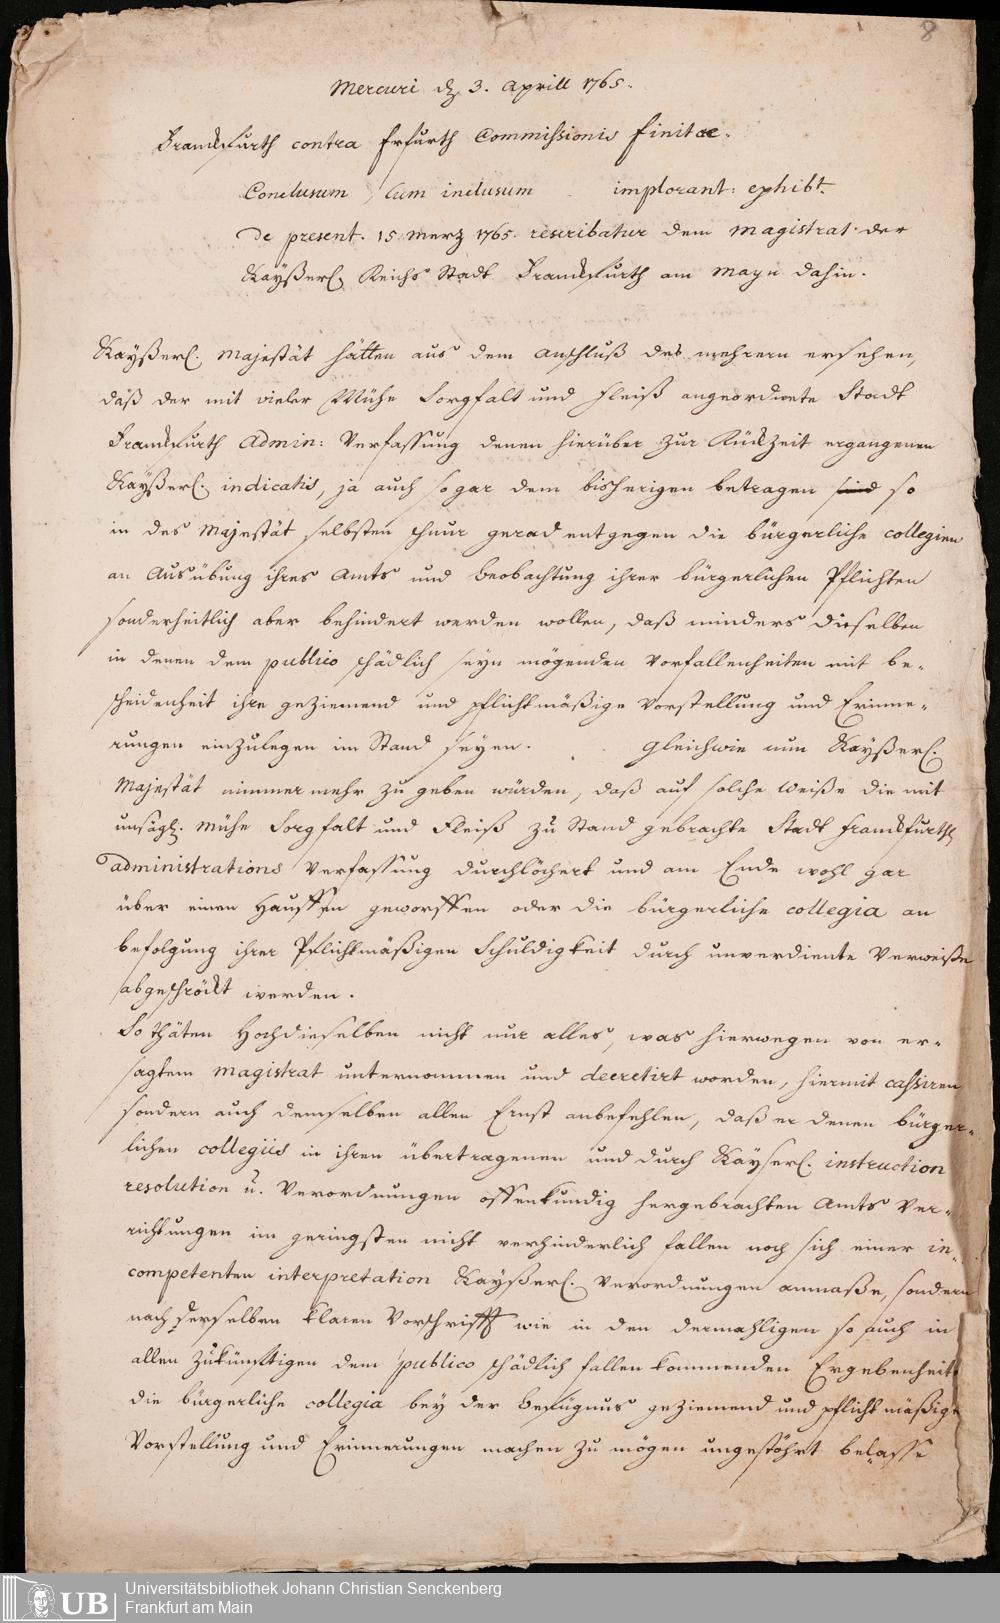 8
Mercuri d. 3. Aprill 1765.
Franckfurth contra Erfurth Commissionis finitae.
Conclusum, Cum inclusum implorant: exhibt.
de present. 15 Merz 1765. rescribatur dem Magistrat der
Kayßerl. Reichs Stadt Franckfurth am Mayn dahin.
Kayßerl. Majestät hätten aus dem Anschluß des mehrern ersehen,
daß der mit vieler Mühe Sorgfalt und Fleiß angeordnete Stadt
Franckfurth Admin: Verfassung denen hierüber zur Rückzeit ergangenen
Kayßerl. indicatis, ja auch sogar dem bisherigen betragen so
in des Majestät selbsten schnur gerad entgegen die bürgerliche collegien
an Ausübung ihres Amts und beobachtung ihrer bürgerlichen Pflichten
sonderheitlich aber behindert werden wollen, daß minders dieselben
in denen dem publico schädlich seyn mögenden Vorfallenheiten mit be-
scheidenheit ihre geziemend und pflichtmäßige Vorstellung und Erinne-
rungen einzulegen im Stand seyen. Gleichwie nun Kayßerl.
Majestät nimmermehr zu geben würden, daß auf solche Weiße die mit
unsägl. Mühe Sorgfalt und Fleiß zu Stand gebrachte Stadt Franckfurthl
administrations Verfassung durchlöchert und am Ende wohl gar
über einen Hauffen geworffen oder die bürgerliche collegia an
befolgung ihrer Pflichtmäßigen Schuldigkeit durch unverdiente Verweiße
abgeschröckt werden.
So thäten Hochdieselben nicht nur alles, was hierwegen von er-
sagtem Magistrat unternommen und decretirt worden, hiermit cassiren
sondern auch demselben allen Ernst anbefehlen, daß er denen bürger-
lichen collegiis in ihren übertragenen und durch Kayserl. instruction
resolution u. Verordnungen offenkundig hergebrachten Amts Ver-
richtungen im geringsten nicht verhinderlich fallen noch sich einer in-
competenten interpretation Kayßerl. Verordnungen anmaße, sondern
nach derselben klaren Vorschrifft wie in den dermahligen so auch in
allen zukünftigen dem publico schädlich fallen kommenden Ergebenheit
die bürgerliche collegia bey der befugnus geziemend und pflichtmäßige
Vorstellung und Erinnerungen machen zu mögen ungestöhrt belasse
UB
Universitätsbibliothek Johann Christian Senckenberg
Frankfurt am Main